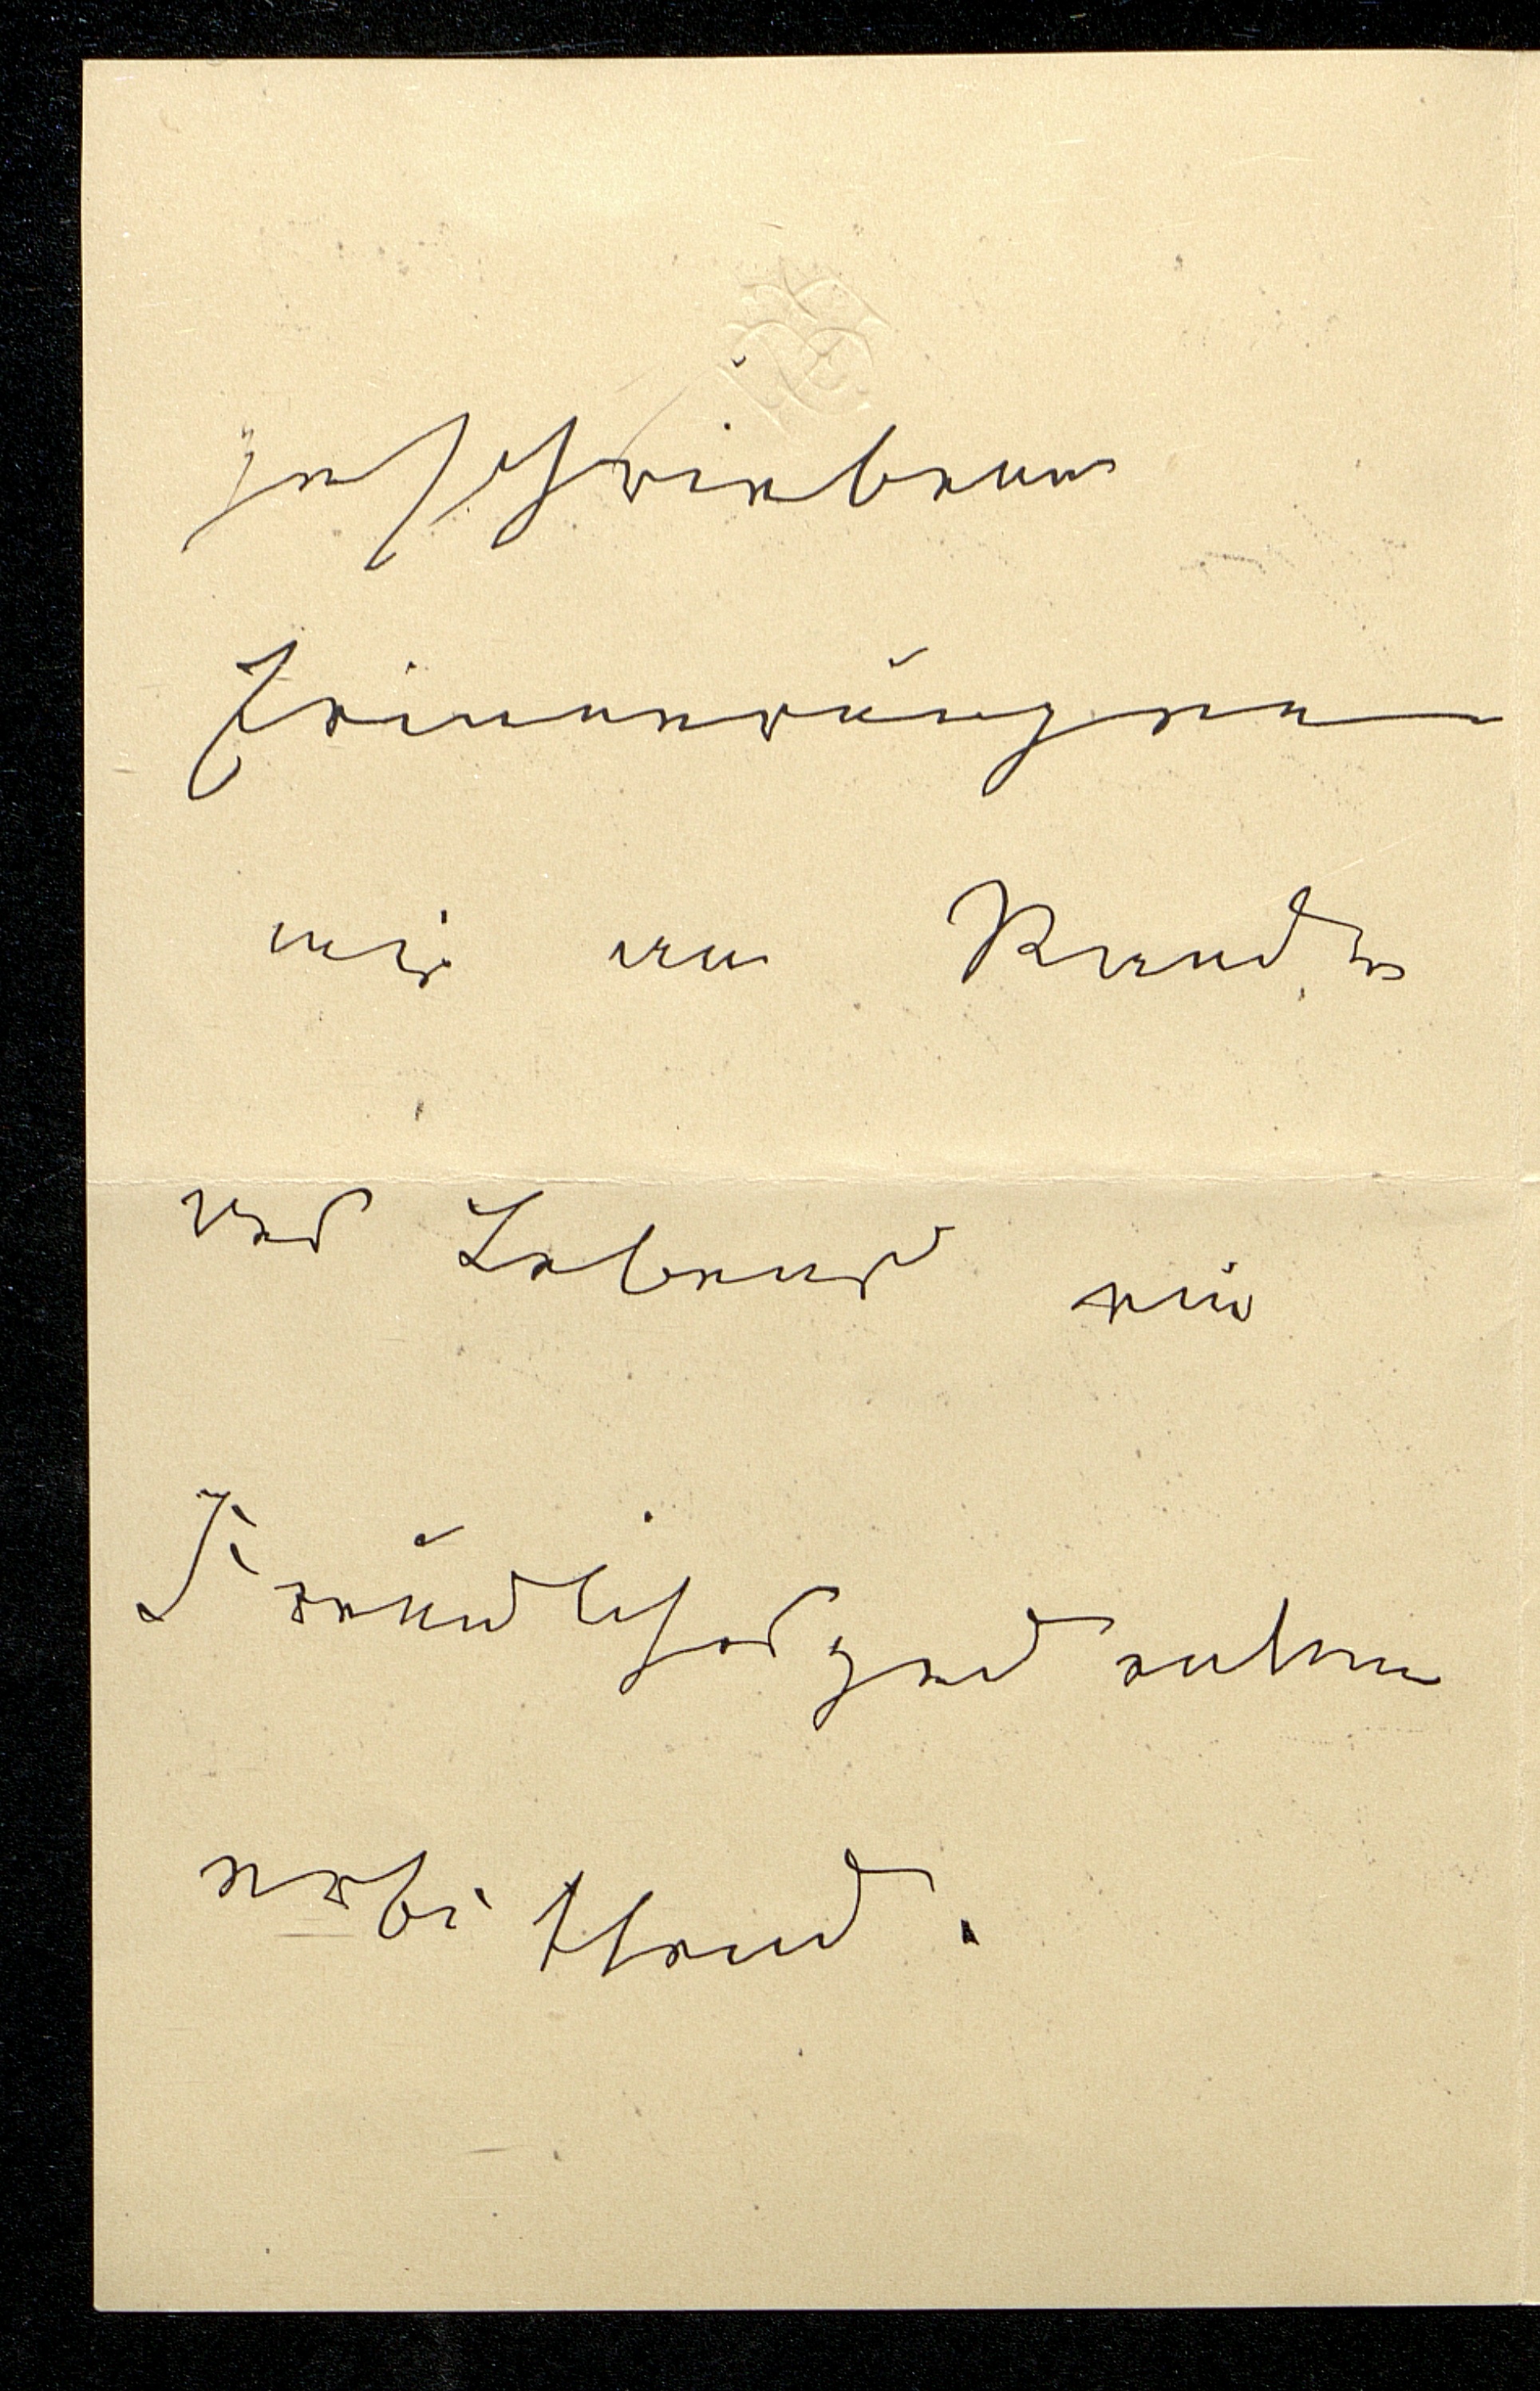 geschriebenen
Erinnerungen
mir am Rande
des Lebens ein
Freundlichesgedenken
erbittend.